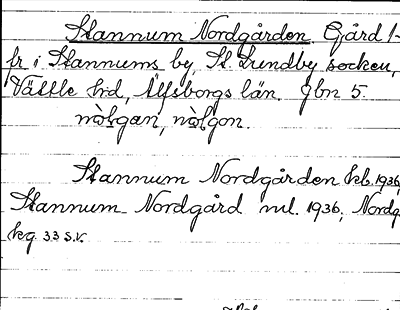 Stannum Nordgården. Gård 1-
fr i Stannums by, St. Lundby socken,
Vättle hd, Älfsborgs län. Gbn 5.
nòḷgan, nòḷgon.
Stannum Nordgården kb. 1936,
Stannum Nordgård ml. 1936, Nordg
kg 33 s.v.